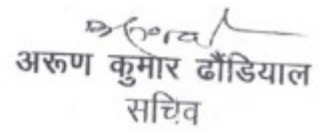 अरूण कुमार ढौंडियाल
सचिव